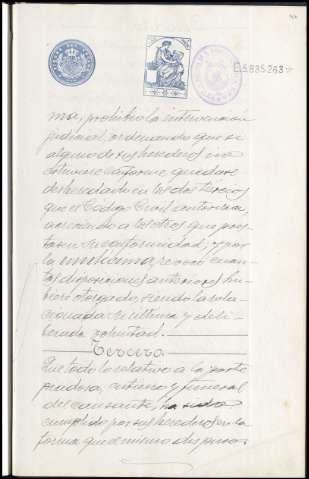 E5885263
mos, prohibió la intervención
judicial, ordenando que si
alguno de sus herederos no
estuviere conforme quedare
desheredado en los dos tercios
que el Código Civil autoriza,
a los otros que pres-
tasen su conformidad, y por
la undécima, revocó cuan-
tas disposiciones anteriores hu-
biere otorgado, siendo la rela-
cionada su última y deli-
berada voluntad.
Tercero
Que todo lo relativo a la parte
piadosa, entierro y funeral
del causante, ha sido
cumplido por sus herederos en la
forma que el mismo dispuso